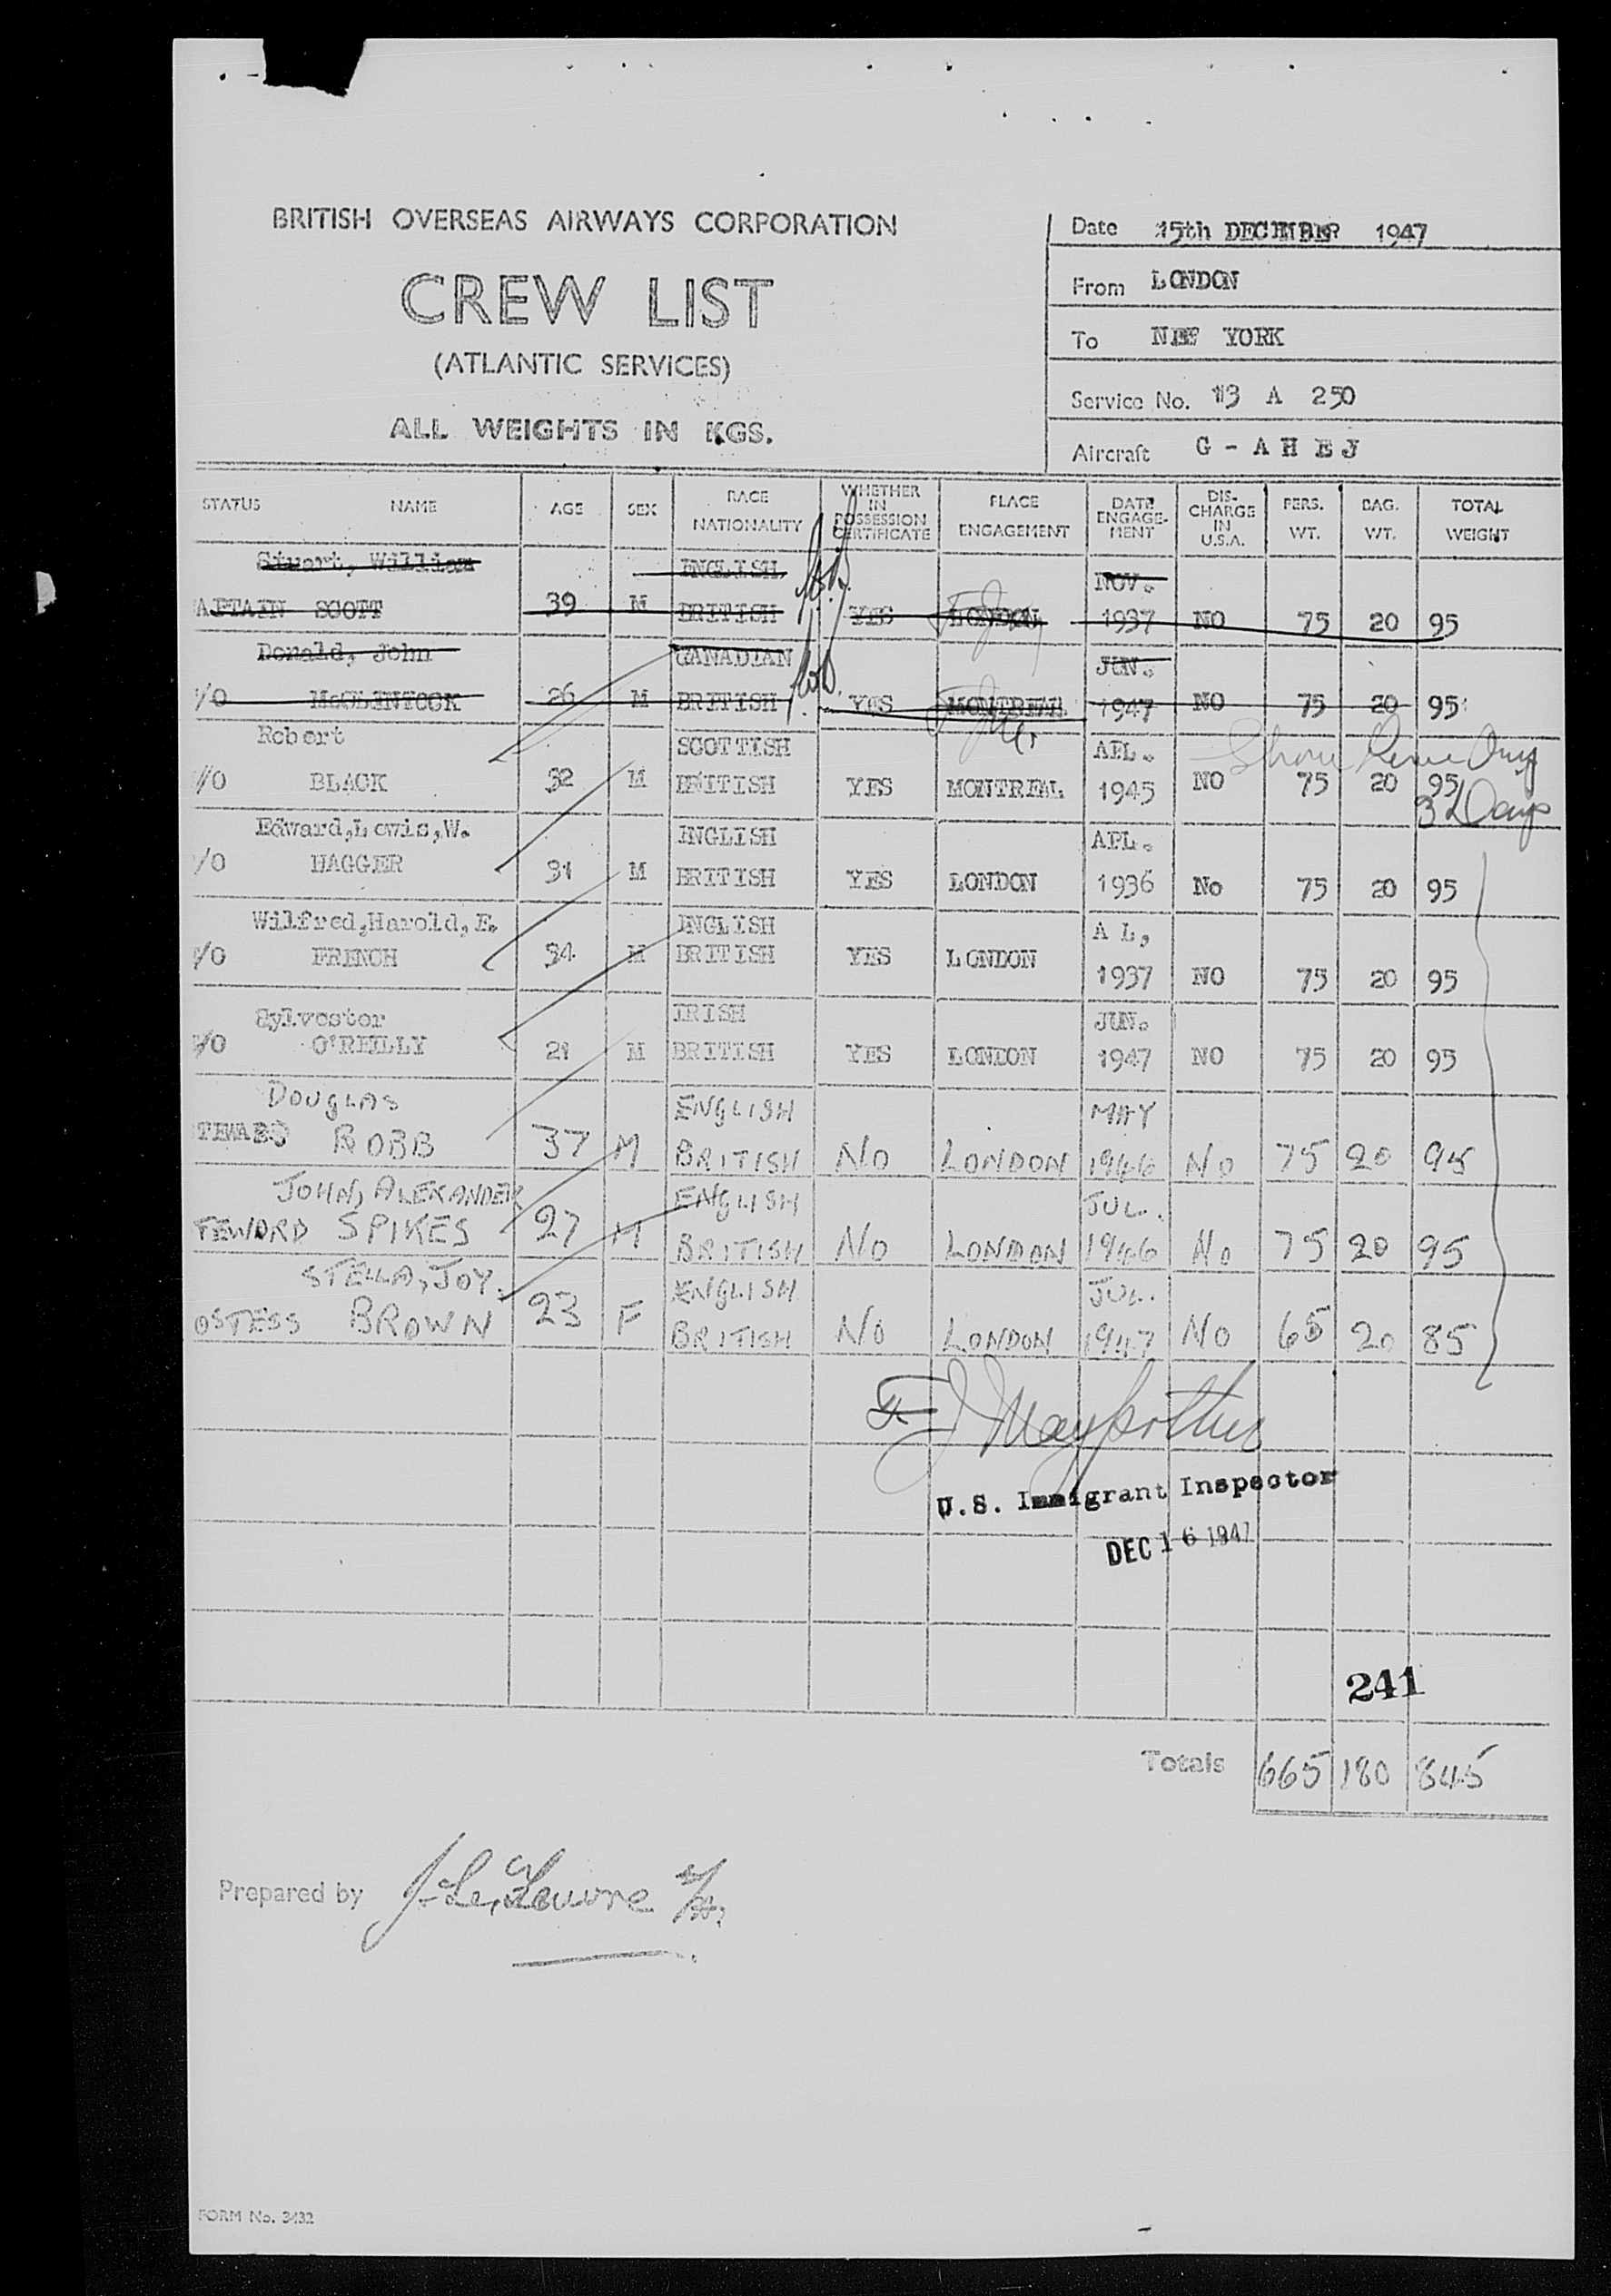 BRITISH OVERSEAS AIRWAYS CORPORATION
CREW LIST
(ATLANTIC SERVICES)
ALL WEIGHTS IN KGS.
Date 15th DECEMBER 1947
From LONDON
To NEW YORK
Service No. 13 A 250
Aircraft G - A H E J
STATUS NAME AGE SEX RACE NATIONALITY WHETHER IN POSSESSION CERTIFICATE PLACE ENGAGEMENT DATE ENGAGE-MENT DIS-CHARGE IN U.S.A. PERS. WT. BAG. WT. TOTAL WEIGHT
Stuart, William ENGLISH NOV.
APTAIN SCOTT 39 M BRITISH YES LONDON 1937 NO 75 20 95
Donald, John CANADIAN JUN.
/O McCLINTOCK 26 M BRITISH YES MONTREAL 1947 NO 75 20 95
Robert SCOTTISH APL. Shore Leave Only
/O BLACK 32 M BRITISH YES MONTREAL 1945 NO 75 20 95
3 Days
Edward,Lewis,W. ENGLISH APL.
/O HAGGER 31 M BRITISH YES LONDON 1936 No 75 20 95
Wilfred,Harold,E. ENGLISH A L,
/O FRENCH 34 M BRITISH YES LONDON 1937 NO 75 20 95
Sylvester IRISH JUN.
/O O'REILLY 21 M BRITISH YES LONDON 1947 NO 75 20 95
DOUGLAS ENGLISH MAY
TEWARD ROBB 37 M BRITISH NO LONDON 1946 NO 75 20 95
JOHN, ALEXANDER ENGLISH JUL.
TEWARD SPIKES 27 M BRITISH NO LONDON 1946 NO 75 20 95
STELLA, JOY. ENGLISH JUL.
OSTESS BROWN 23 F BRITISH NO LONDON 1947 NO 65 20 85
U.S. Immigrant Inspector
DEC 16 1947
241
Totals 665 180 845
Prepared by
FORM No. 3432